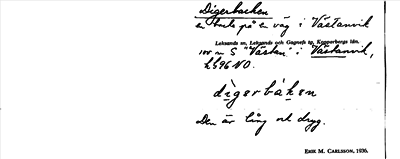 Digerbacken
en backe på en väg i Västanvik
Leksands sn, Leksands och Gagnefs tg, Kopparbergs län.
100 m S "Västan" i Västanvik,
h596 NO.
dìgerbàken
Den är lång och dryg.
ERIK M. CARLSSON, 1930.